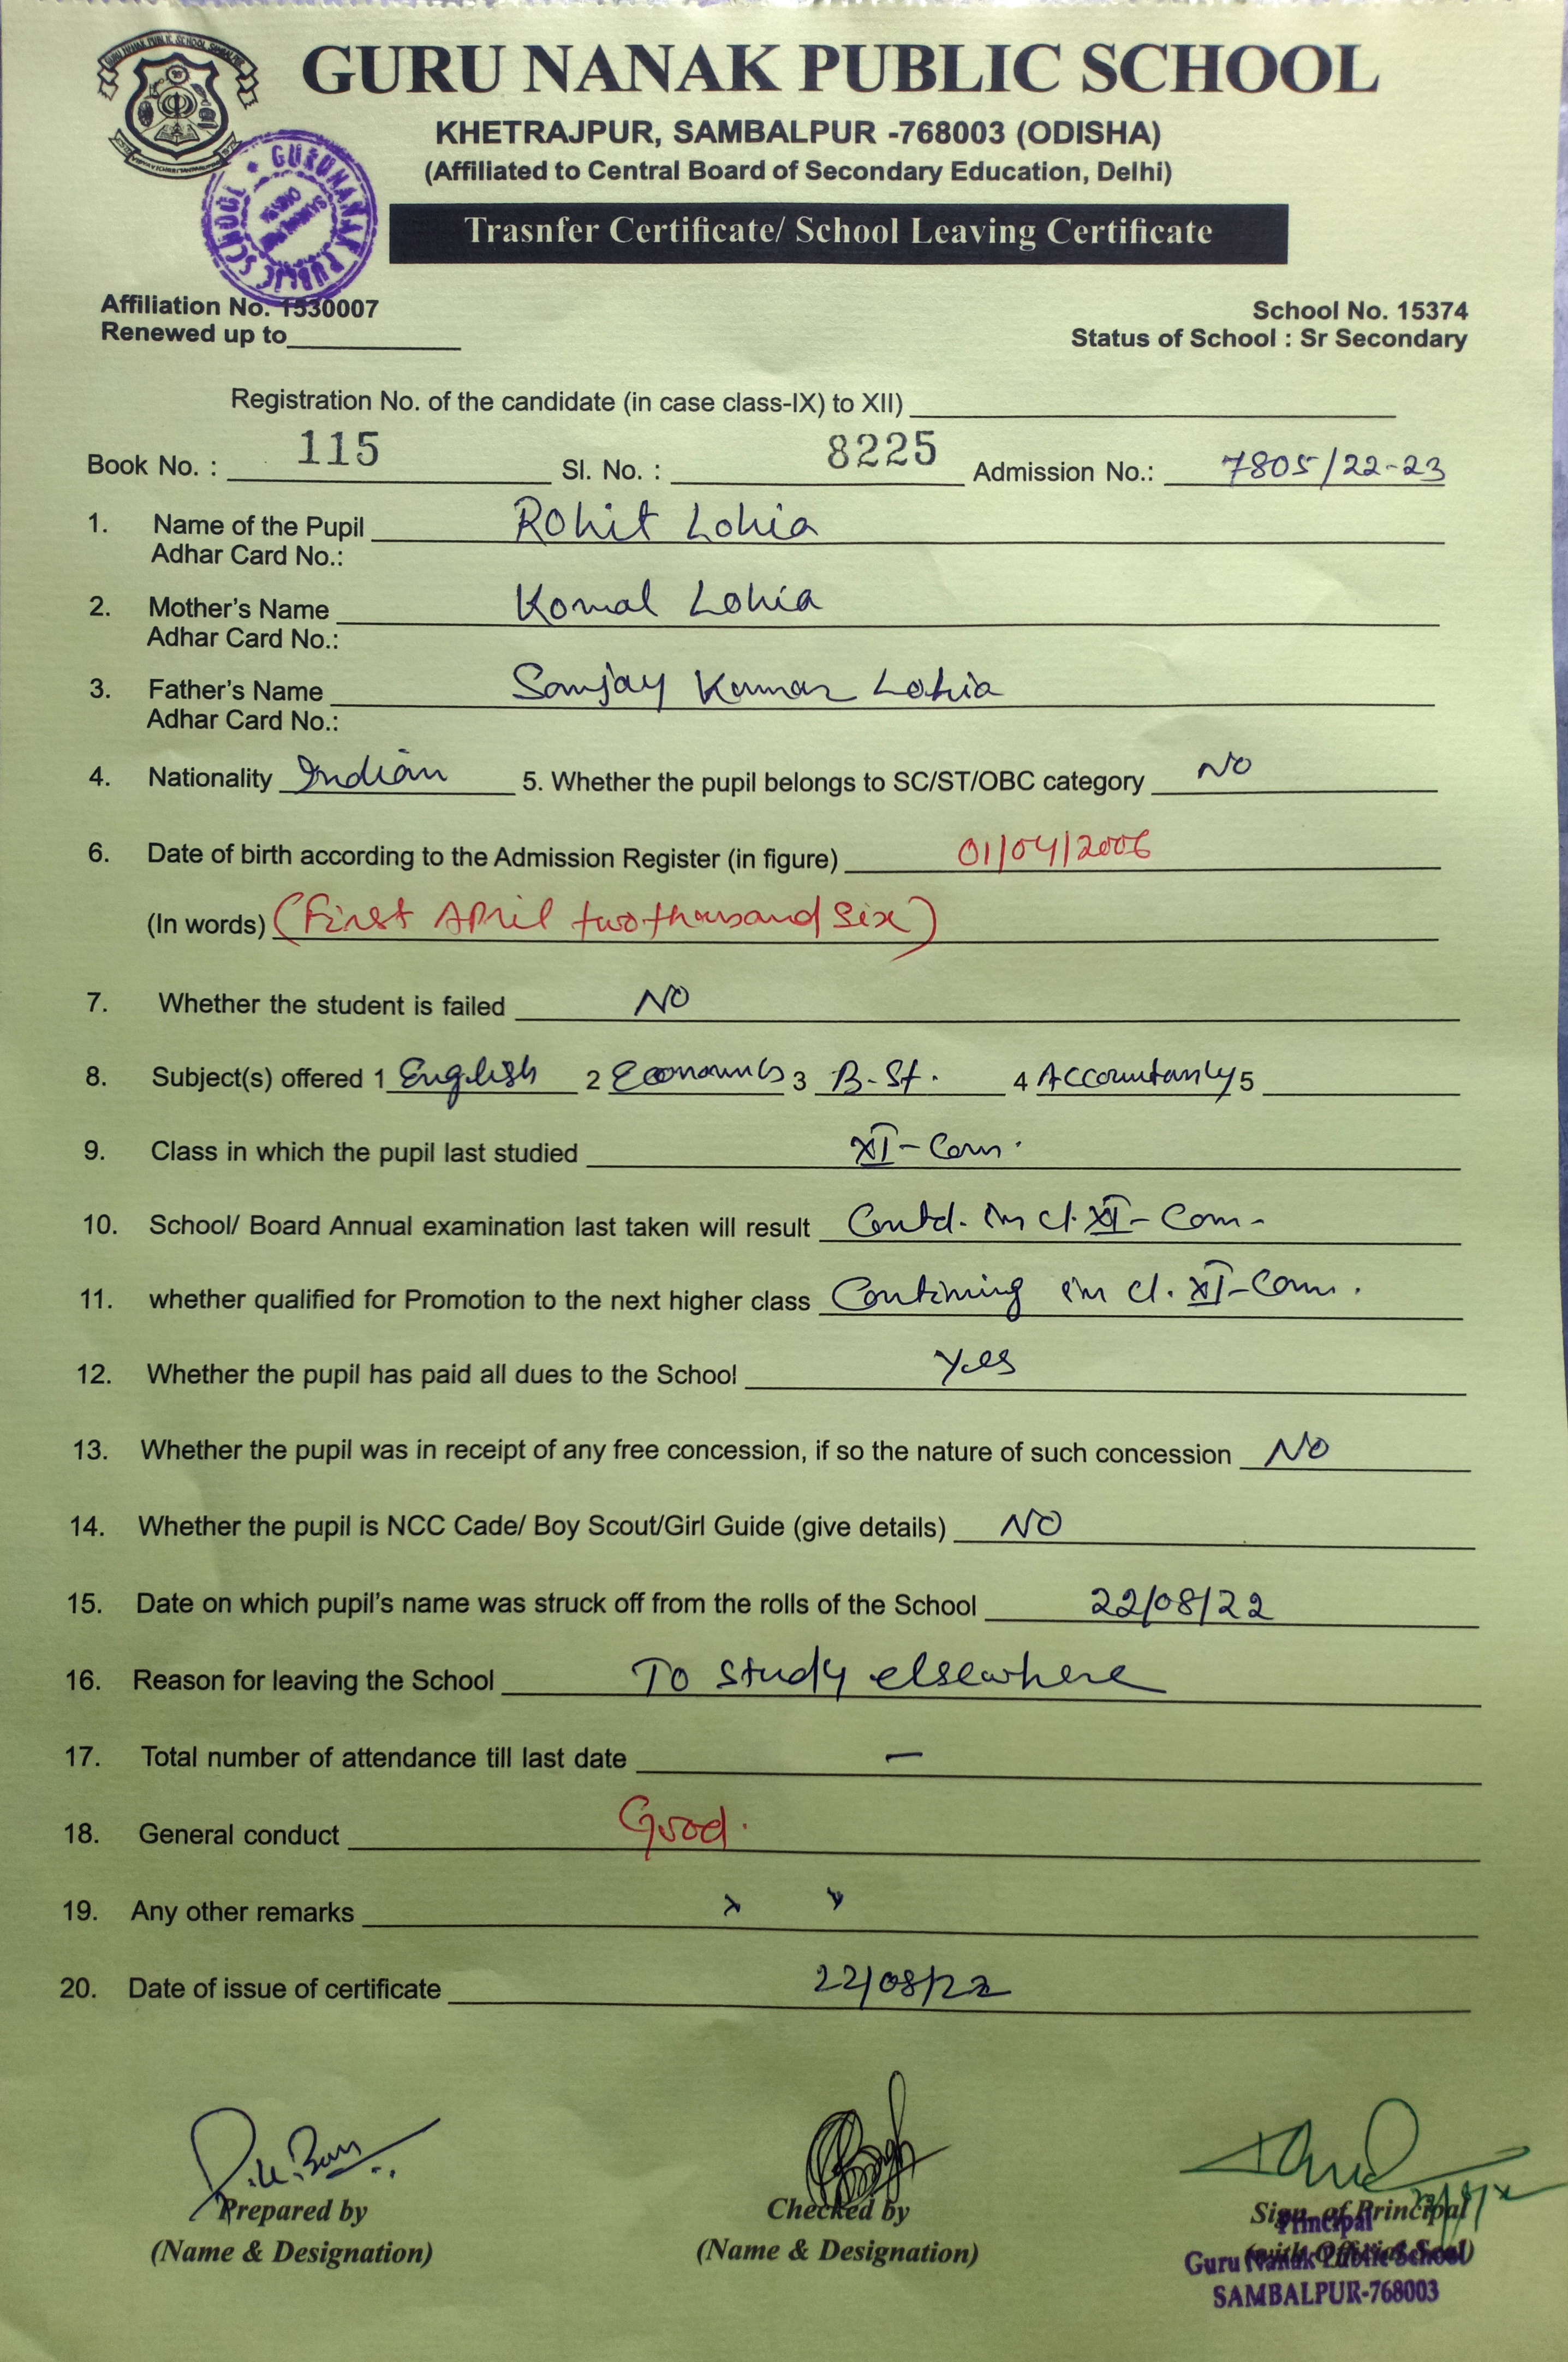 GURU NANAK PUBLIC SCHOOL
KHETRAJPUR, SAMBALPUR -768003 (ODISHA)
(Affiliated to Central Board of Secondary Education, Delhi)
GURUNANAK PUBLIC SCHOOL
Trasnfer Certificate/ School Leaving Certificate
Affiliation No. 1530007 School No. 15374
Renewed up to Status of School : Sr Secondary
Registration No. of the candidate (in case class-IX) to XII)
Book No. : 115 Sl. No. : 8225 Admission No.: 7805/22-23
1. Name of the Pupil Rohit Lohia
Adhar Card No.:
2. Mother's Name Komal Lohia
Adhar Card No.:
3. Father's Name Sanjay Kumar Lohia
Adhar Card No.:
4. Nationality Indian 5. Whether the pupil belongs to SC/ST/OBC category NO
6. Date of birth according to the Admission Register (in figure) 01/04/2006
(In words) (First April two thousand Six)
7. Whether the student is failed NO
8. Subject(s) offered 1 English 2 Economics 3 B.St. 4 Accountancy 5
9. Class in which the pupil last studied XI-Com.
10. School/ Board Annual examination last taken will result Contd. in cl. XI-Com-
11. whether qualified for Promotion to the next higher class Continuing in cl. XI-Com.
12. Whether the pupil has paid all dues to the School Yes
13. Whether the pupil was in receipt of any free concession, if so the nature of such concession NO
14. Whether the pupil is NCC Cade/ Boy Scout/Girl Guide (give details) NO
15. Date on which pupil's name was struck off from the rolls of the School 22/08/22
16. Reason for leaving the School To study elsewhere
17. Total number of attendance till last date —
18. General conduct Good.
19. Any other remarks x x
20. Date of issue of certificate 22/08/22
Prepared by Checked by Sign. of Principal
(Name & Designation) (Name & Designation) (with Official Seal)
Principal
Guru Nanak Public School
SAMBALPUR-768003